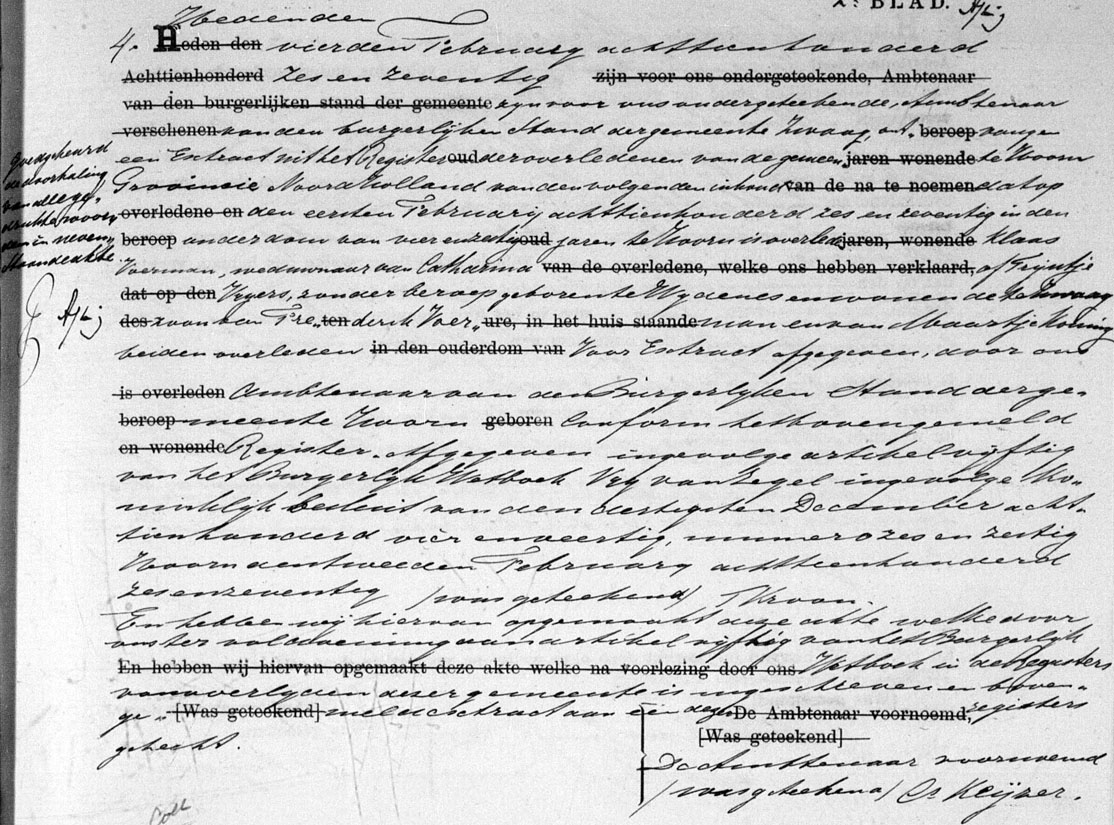 BLAD.
Heden den
4. Heden den vierden February achttienhonderd
Achttienhonderd zes en zeventig zijn voor ons ondergeteekende, Ambtenaar
van den burgerlijken stand der gemeente zijn voor ons ondergeteekende, Ambtenaar
verschenen van den burgerlijken Stand der gemeente Zwaag, ont- beroep vangen
een Extract uit het Register oud der overledenen van de gemeen- jaren wonende te Hoorn
Provincie Noord Holland van den volgenden inhoud van de na te noemen dat op
overledene en den eersten Februarij achttienhonderd zes en zeventig in den
beroep ouderdom van vier en zestig oud jaren te Hoorn is overleden jaren, wonende Klaas
Voerman, weduwnaar van Catharina van de overledene, welke ons hebben verklaard, of Trijntje
dat op den zonder beroep geboren te Wydenes en wonende te Zwaag
des zoon van ten derik Voer- ure, in het huis staande man en van Maartje Koning
beiden overleden in den ouderdom van Voor Extract afgegeven, door ons
is overleden Ambtenaar van den Burgerlyken Stand der ge-
beroep meente Hoorn geboren Conform het bovengemeld
en wonende Register. Afgegeven ingevolge artikel vyftig
van het Burgerlyk Wetboek Vry van Zegel ingevolge Ko-
ninklijk besluit van den dertigsten December acht-
tienhonderd vier en veertig, numero zes en zestig
Hoorn den tweeden February achttienhonderd
zes en zeventig /was geteekend/ Kroon.
En hebben wij hiervan opgemaakt deze akte welke door
ons ter voldoening aan artikel vyftig van het Burgerlyk
En hebben wij hiervan opgemaakt deze akte welke na voorlezing door ons Wetboek in de Registers
van overlyden dezer gemeente is ingeschreven en boven-
ge- [Was geteekend] meld extract aan een dezer De Ambtenaar voornoemd, registers
gehecht. [Was geteekend]
De Ambtenaar voornoemd
/was geteekend/ Cs Keijzer.
Goedgekeurd
de doorhaling
van alle ge-
drukte woor-
den in neven-
staande akte.